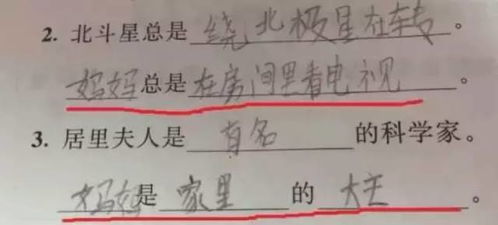 2. 北斗星总是 绕北极星在转 。
妈妈总是 在房间里看电视 。
3. 居里夫人是 有名 的科学家。
妈妈是 家里 的 大王 。